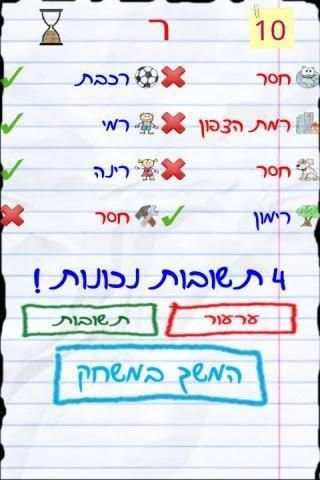 10 ר
חסר רכבת
רמת הצפון רמי
חסר רינה
רימון חסר
4 תשובות נכונות !
ערעור תשובות
המשך במשחק